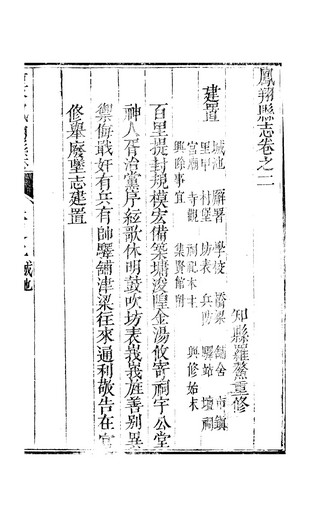 鳳翔縣志卷之二
知縣羅鰲重修
建置
城池 廨署 學校 橋梁 舖舍 市鎮
里甲 村堡 坊表 兵防 驛站 壇祠
宮廟 寺觀 祠祀木主 興修始末
興除事宜 集賢館附
百里提封規模宏備築墉浚隍金湯攸寄祠宇公堂
神人胥治黨序絃歌休明鼓吹坊表峩峩旌善别異
禦侮戢奸有兵有帥驛舖津梁往來通利敬告在官
修舉廢墜志建置
城池